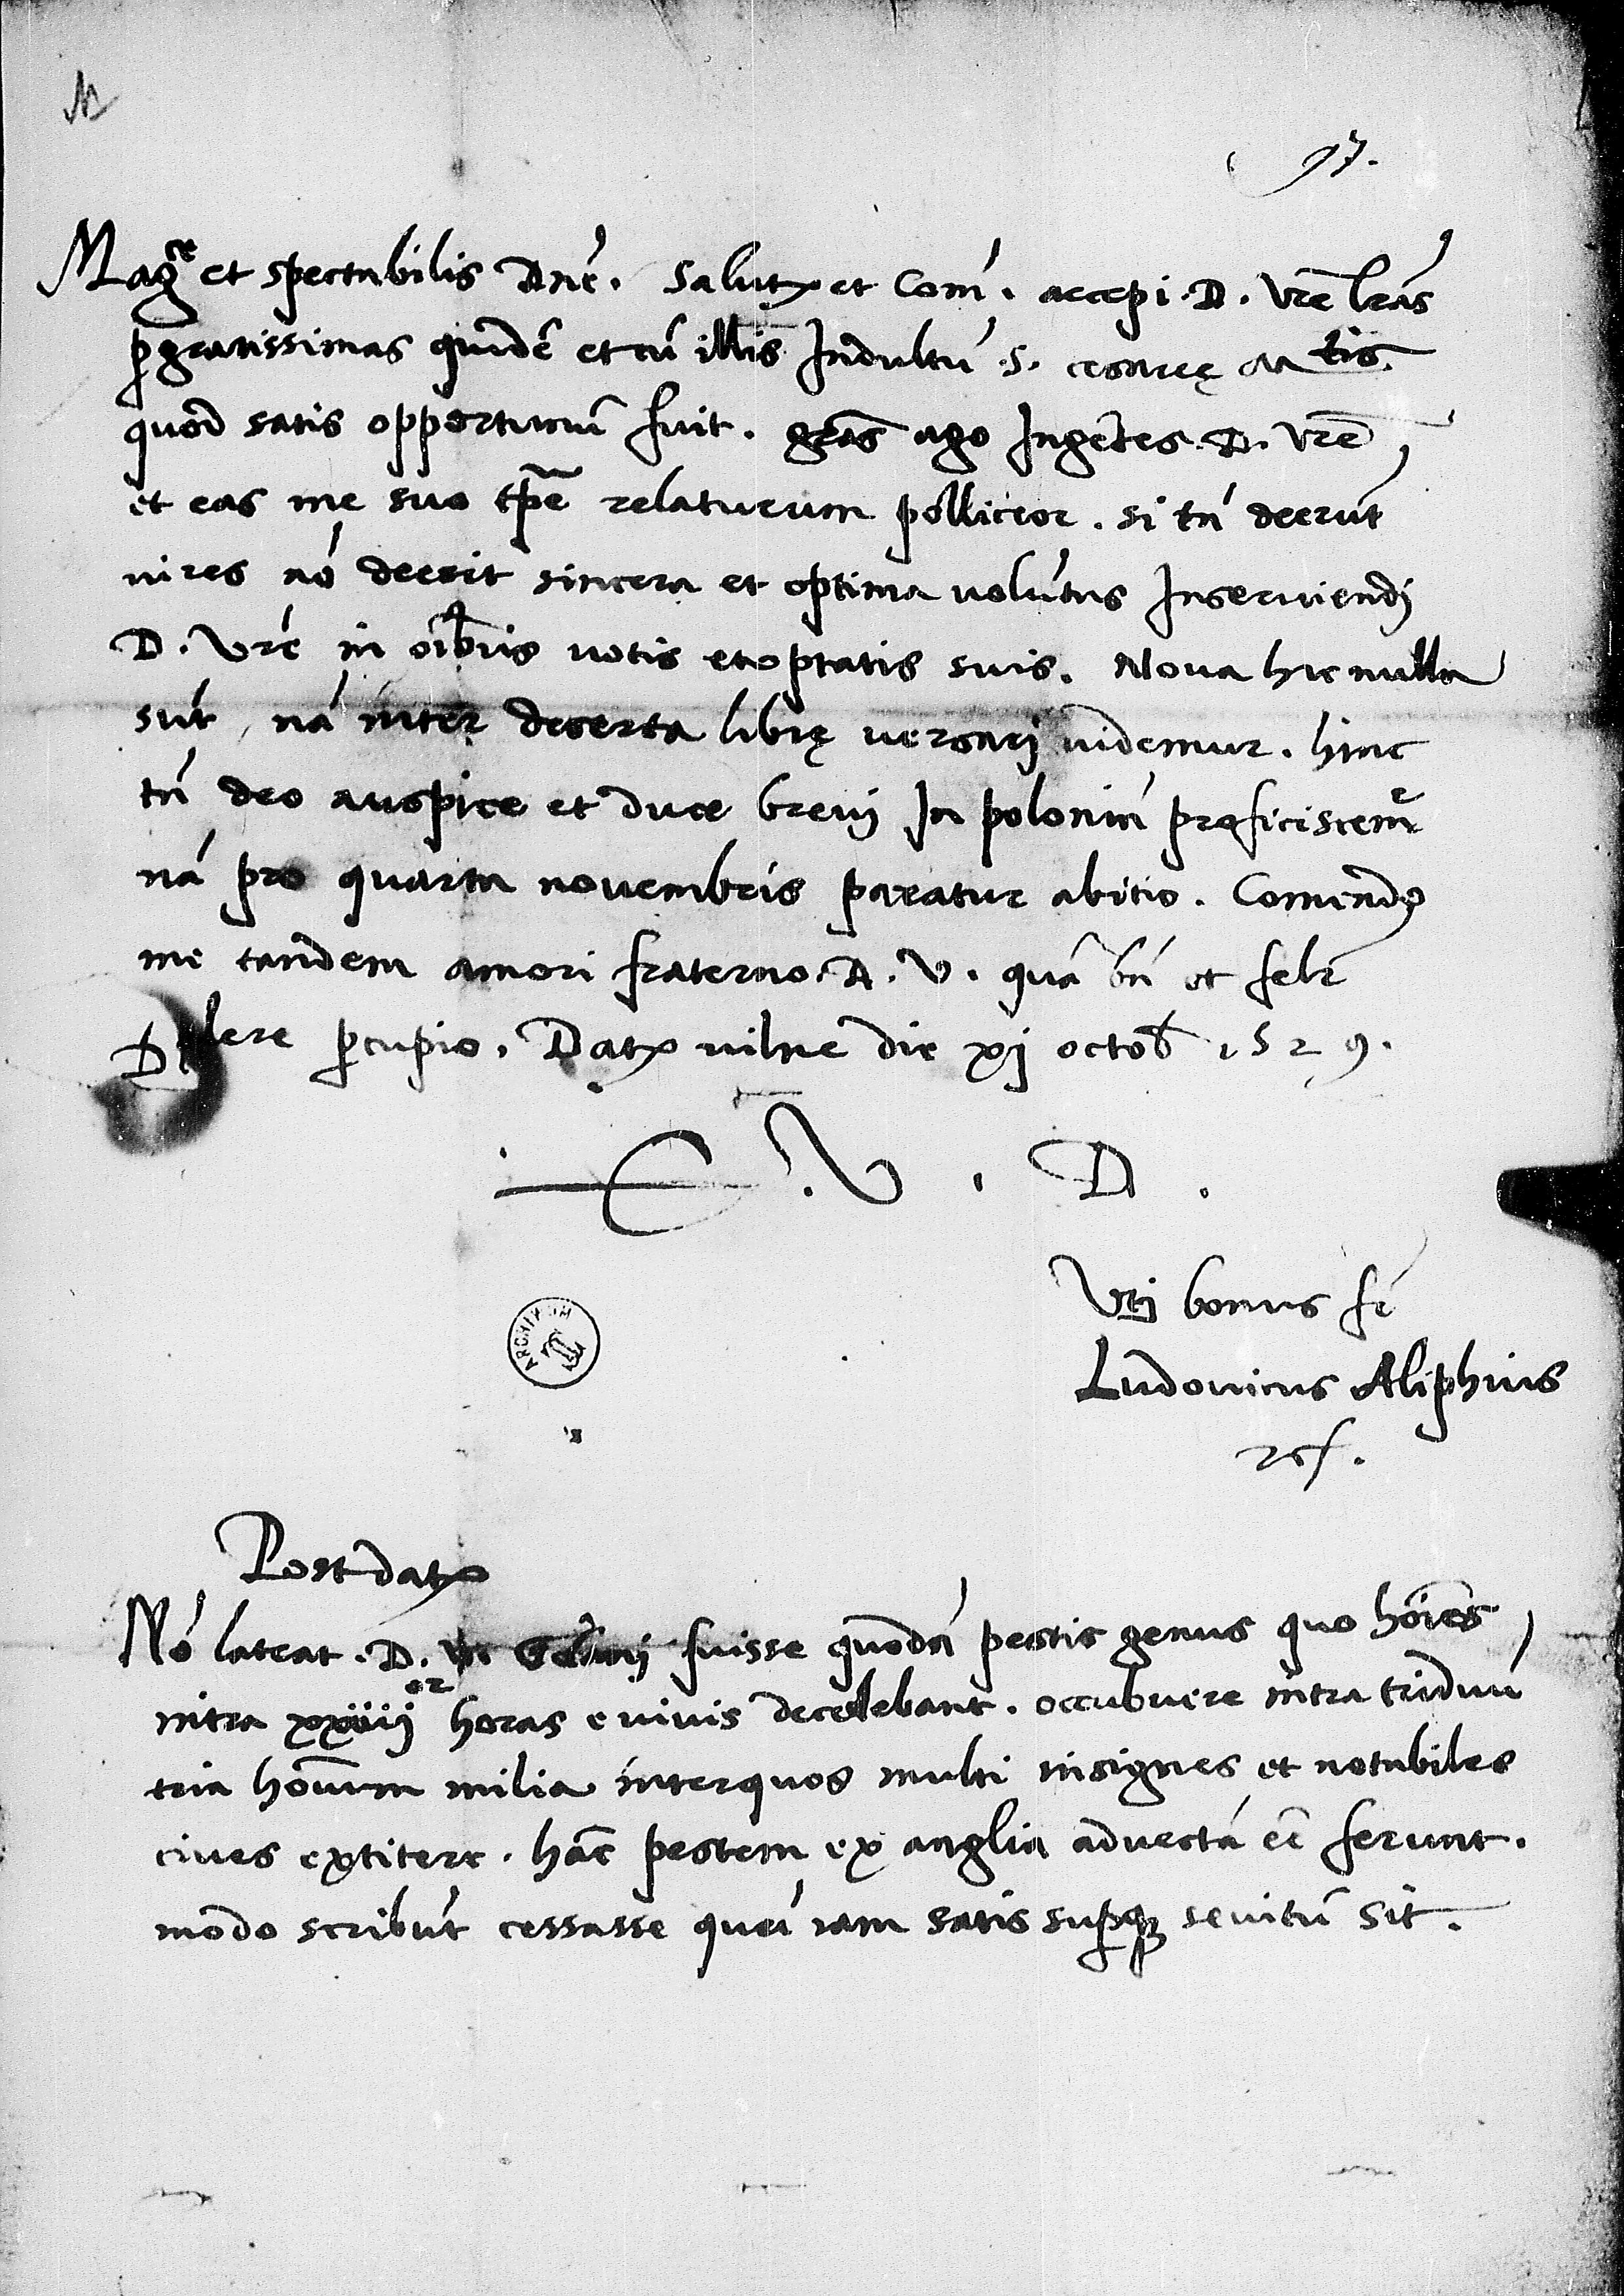 97.
Mag^ce et spectabilis Dne͂. Salutẽ et Com͂. accepi .D. vrẽ lrãs
ꝑgratissimas quidẽ et cũ illis Indultũ .S. cesareę M^tis.
quod satis opportunũ fuit. grãs ago Ingẽtes .D. vrẽ
et eas me suo tp̃e relaturum polliceor. si tñ deerũt
uires nõ deerit sincera et optima volũtas Inseruiendj
D. vrẽ in oĩbus votis et optatis suis. Noua hic nulla
sũt, nã inter deserta libię uersarj uidemur. hinc
tñ deo auspice et duce breuj In poloniã proficiscemr̃
nã pro quarta nouembris paratur abitio. Comendo
me tandem amori fraterno .D. V. quã bñ et felr̃
lere ꝑcupio. Datꝝ vilne die xj octob̃ 1529.
E. V. D.
Vtj bonus fr̃
Ludouicus Aliphius
rsf.
Post datꝝ
Nõ lateat .D. fuisse quoddã pestis genus quo hoĩes
intra xxiiij^or horas e viuis decedebant. occubuere intra triduũ
tria hoĩum milia inter quos multi insignes et notabiles
ciues extitere. hãc pestem ex anglia aduectã eẽ ferunt.
modo scribũt cessasse quũ iam satis supꝗ seuitũ sit.
ARCHIWUM